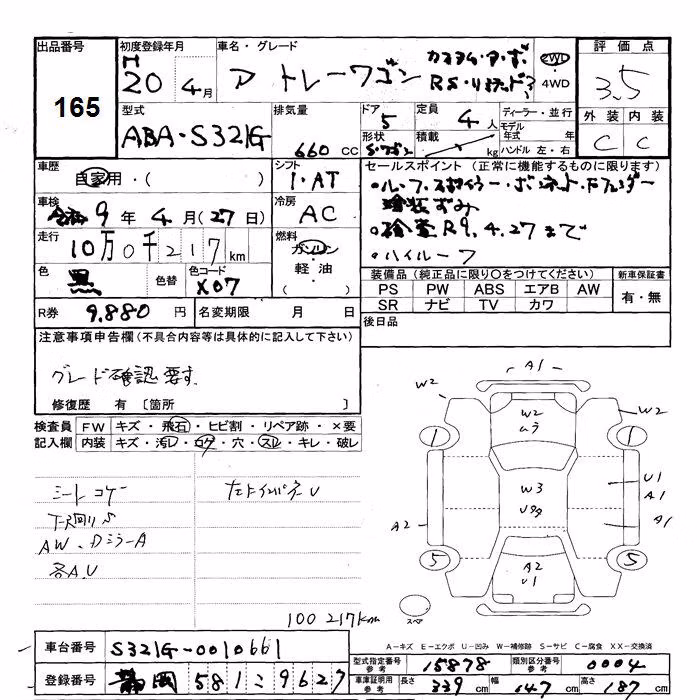 出品番号 初度登録年月 車名・グレード 評価点
165
H 20年 4月 アトレーワゴン カスタム・ターボ RS・リミテッド 2WD・4WD 3.5
型式 排気量 ドア 定員 ディーラー・並行 外装 内装
ABA-S321G 660cc 5 4人 モデル年式 年 C C
形状 積載 kg ハンドル 左・右
車歴 シフト セールスポイント(正常に機能するものに限ります)
自家用・( ) I・AT
・ルーフ・スポイラー・ボンネット・Fフェンダー
塗装ずみ
車検 冷房
令和9年4月(27日) AC
・検査R9.4.27まで
・ハイルーフ
走行 燃料
10万0千217km ガソリン
軽油・( )
色 黒 色替 色コード X07
装備品(純正品に限り〇をつけてください) 新車保証書
PS PW ABS エアB AW 有・無
SR ナビ TV カワ
R券 9,880円 名変期限 月 日
後日品
注意事項申告欄(不具合内容等は具体的に記入して下さい)
グレード確認要す.
修復歴 有〔箇所 〕
検査員記入欄 FW キズ・飛石・ヒビ割・リペア跡・×要
内装 キズ・汚レ・コゲ・穴・スレ・キレ・破レ
シートコゲ
AW、DミラーA
各A.U
100217km
A1
W2 W2
W2
ムラ
1 1
W3
U1
A1
A2 A1
5 5
A2
U1
スペア
A-キズ E-エクボ U-凹み W-補修跡 S-サビ C-腐食 XX-交換済
車台番号 S321G-0010661
型式指定番号 参考 15878 類別区分番号 参考 0004
登録番号 静岡581こ9627
車庫証明用 参考 長さ 339cm 幅 147cm 高さ 187cm